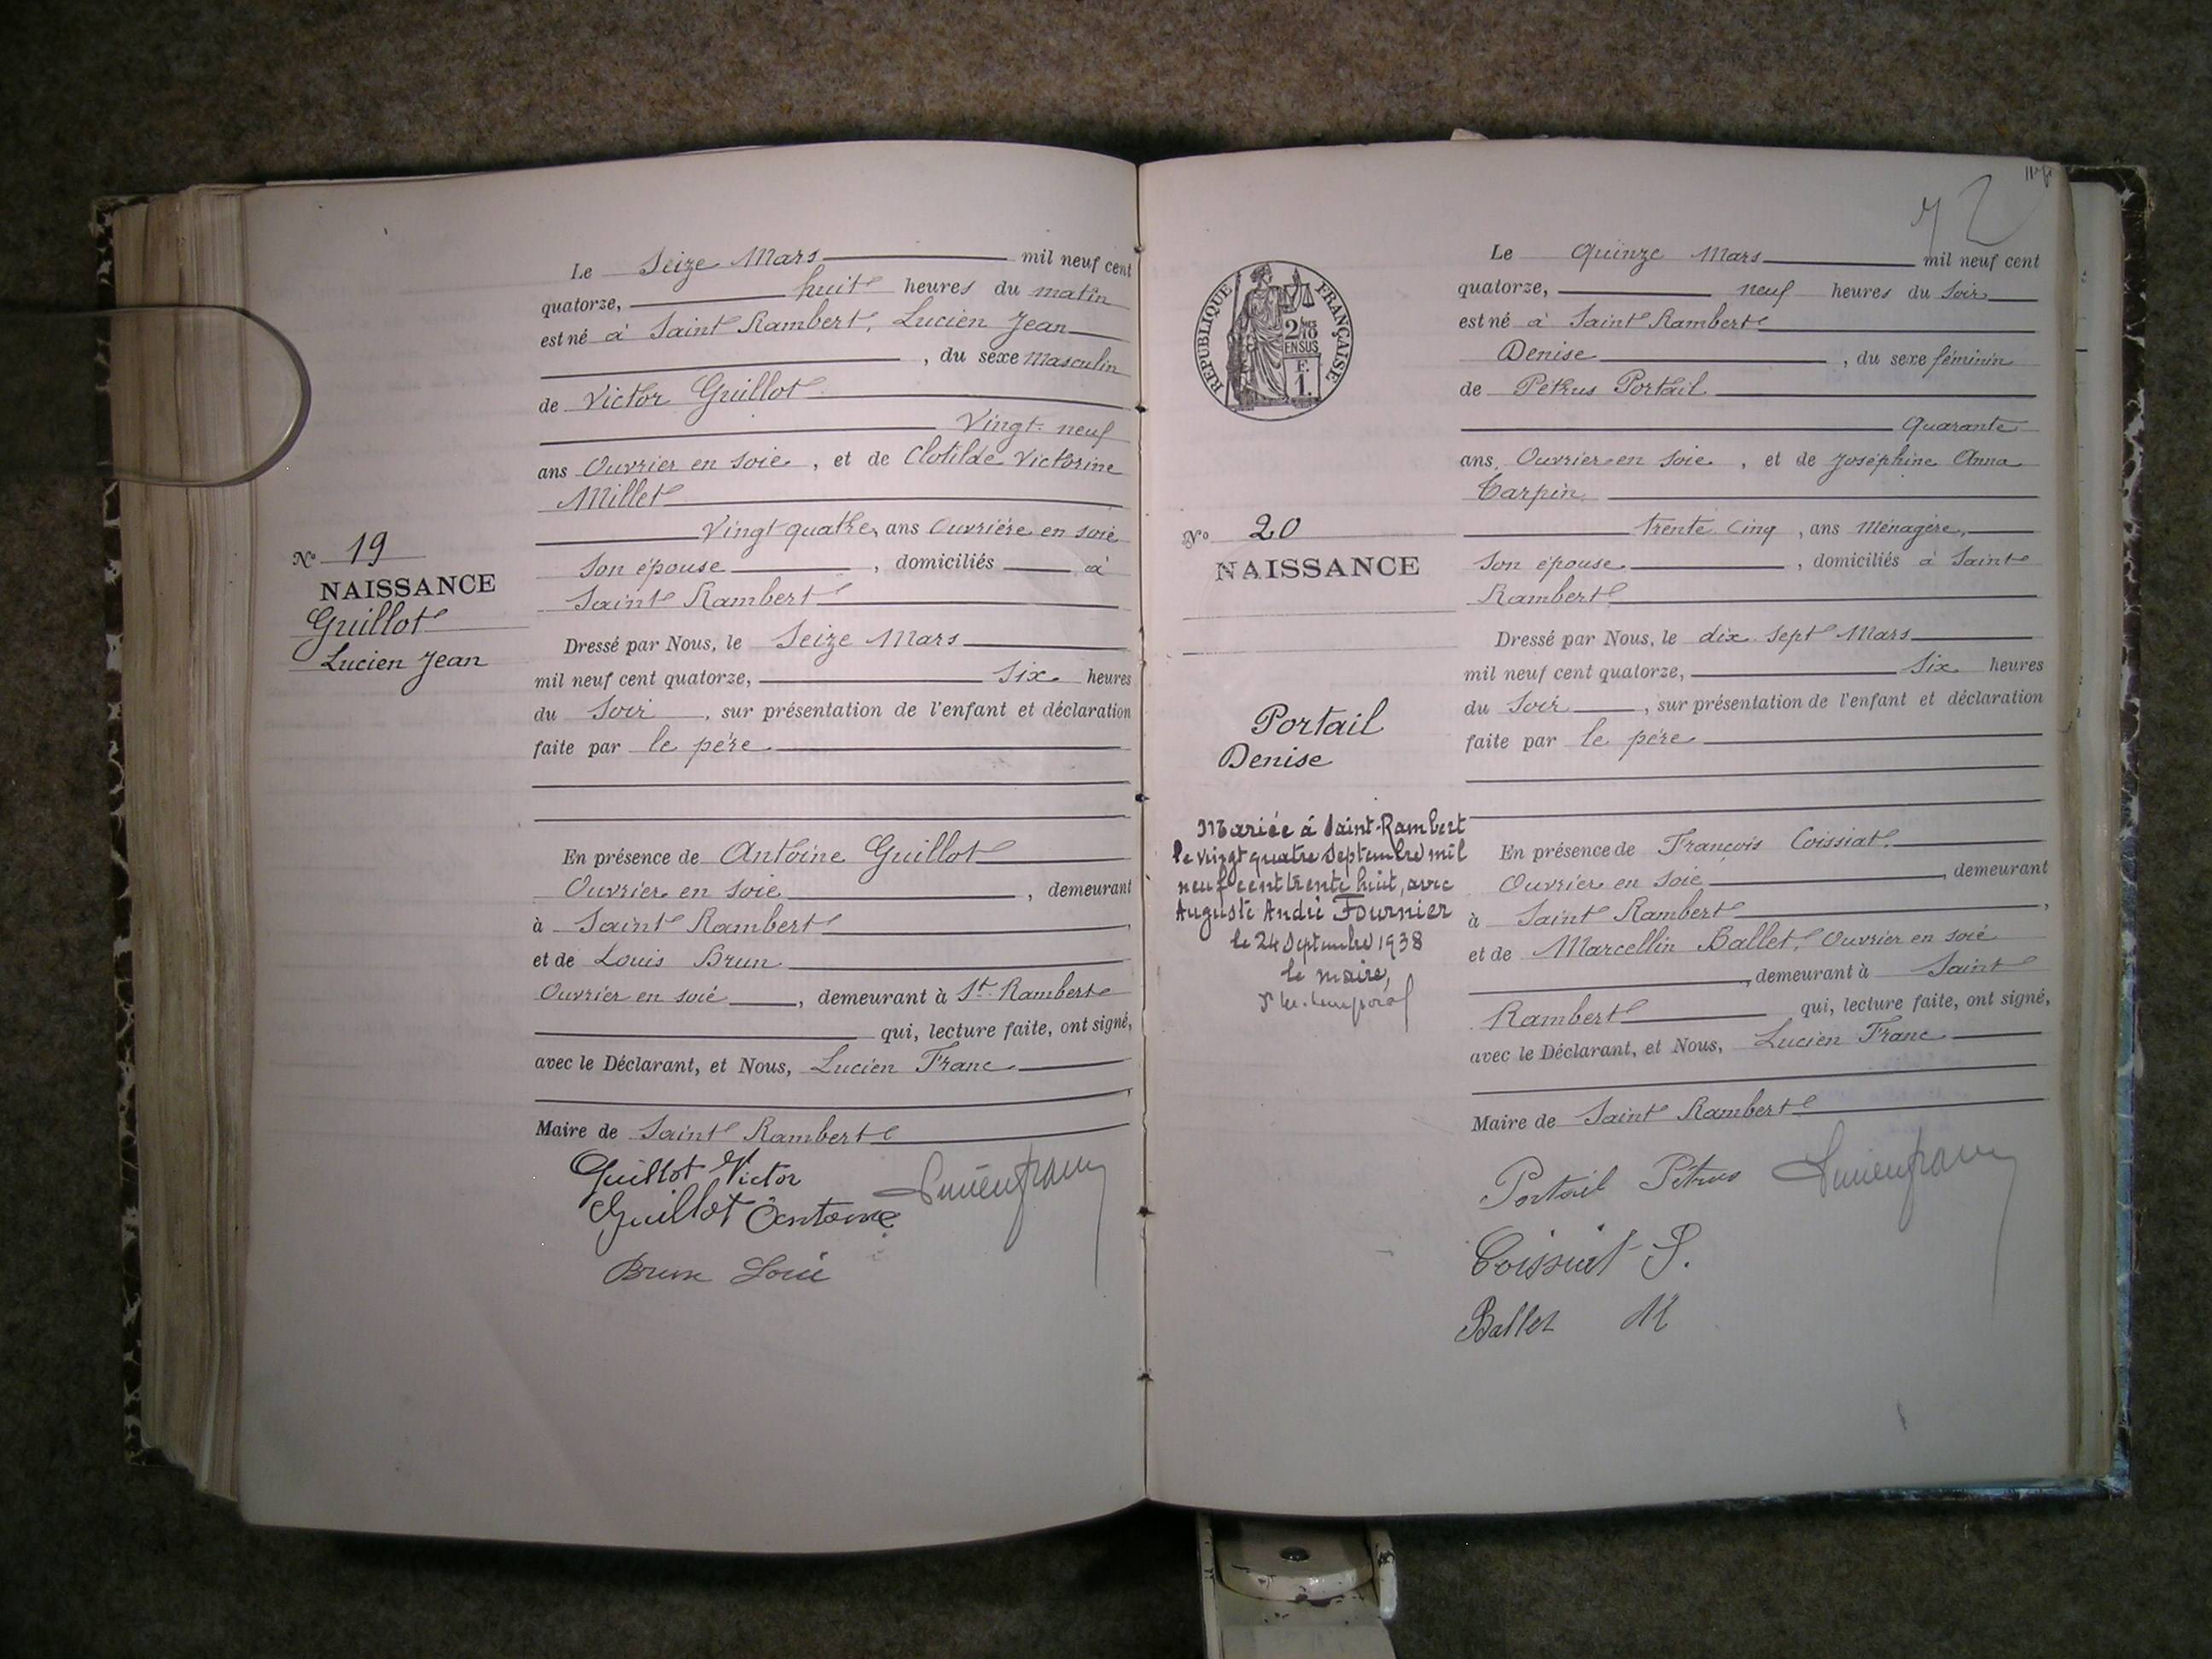 Le Seize Mars mil neuf cent
quatorze, huit heures du matin
est né à Saint Rambert, Lucien Jean
, du sexe Masculin
de Victor Guillot
Vingt-neuf
ans Ouvrier en soie, et de Clotilde Victorine
Millet
Vingt quatre, ans Ouvrière en soie
Son épouse, domiciliés à
Saint Rambert
Nº 19
NAISSANCE
Guillot
Lucien Jean
Dressé par Nous, le Seize Mars
mil neuf cent quatorze, Six heures
du Soir, sur présentation de l'enfant et déclaration
faite par le père
En présence de Antoine Guillot
Ouvrier en soie, demeurant
à Saint Rambert,
et de Louis Brun
Ouvrier en soie, demeurant à St. Rambert
qui, lecture faite, ont signé,
avec le Déclarant, et Nous, Lucien Franc
,
Maire de Saint Rambert
Guillot Victor
Guillot Antoine
Brun
72
RÉPUBLIQUE FRANÇAISE
2/10
EN SUS
F.
1.
Le Quinze Mars mil neuf cent
quatorze, neuf heures du Soir
est né à Saint Rambert
Denise, du sexe féminin
de Pétrus Portail
Quarante
ans, Ouvrier en soie, et de Joséphine Anna
Carpin
trente cinq, ans Ménagère,
Son épouse, domiciliés à Saint
Rambert
Nº 20
NAISSANCE
Portail
Denise
Mariée à Saint-Rambert
le vingt quatre Septembre mil
neuf cent trente huit, avec
Auguste André Fournier
le 24 Septembre 1938
le maire,
Dressé par Nous, le dix sept Mars
mil neuf cent quatorze, Six heures
du Soir, sur présentation de l'enfant et déclaration
faite par le père
En présence de François Coissiat
Ouvrier en soie, demeurant
à Saint Rambert,
et de Marcellin Ballet, Ouvrier en soie
, demeurant à Saint
Rambert qui, lecture faite, ont signé,
avec le Déclarant, et Nous, Lucien Franc
Maire de Saint Rambert
Portail Pétrus
Coissiat
Ballet M